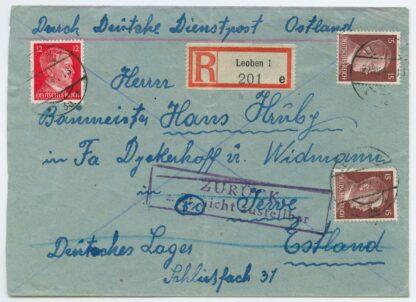 Durch Deutsche Dienstpost Ostland
12 12
DEUTSCHES REICH
R
Leoben 1
201 e
15 15
DEUTSCHES REICH
Herrn
Baumeister Hans Hruby
in Fa Dyckerhoff u. Widmann
in Jerve
ZURÜCK
nicht zustellbar
15 15
DEUTSCHES REICH
Estland
Deutsches Lager
Schließfach 31